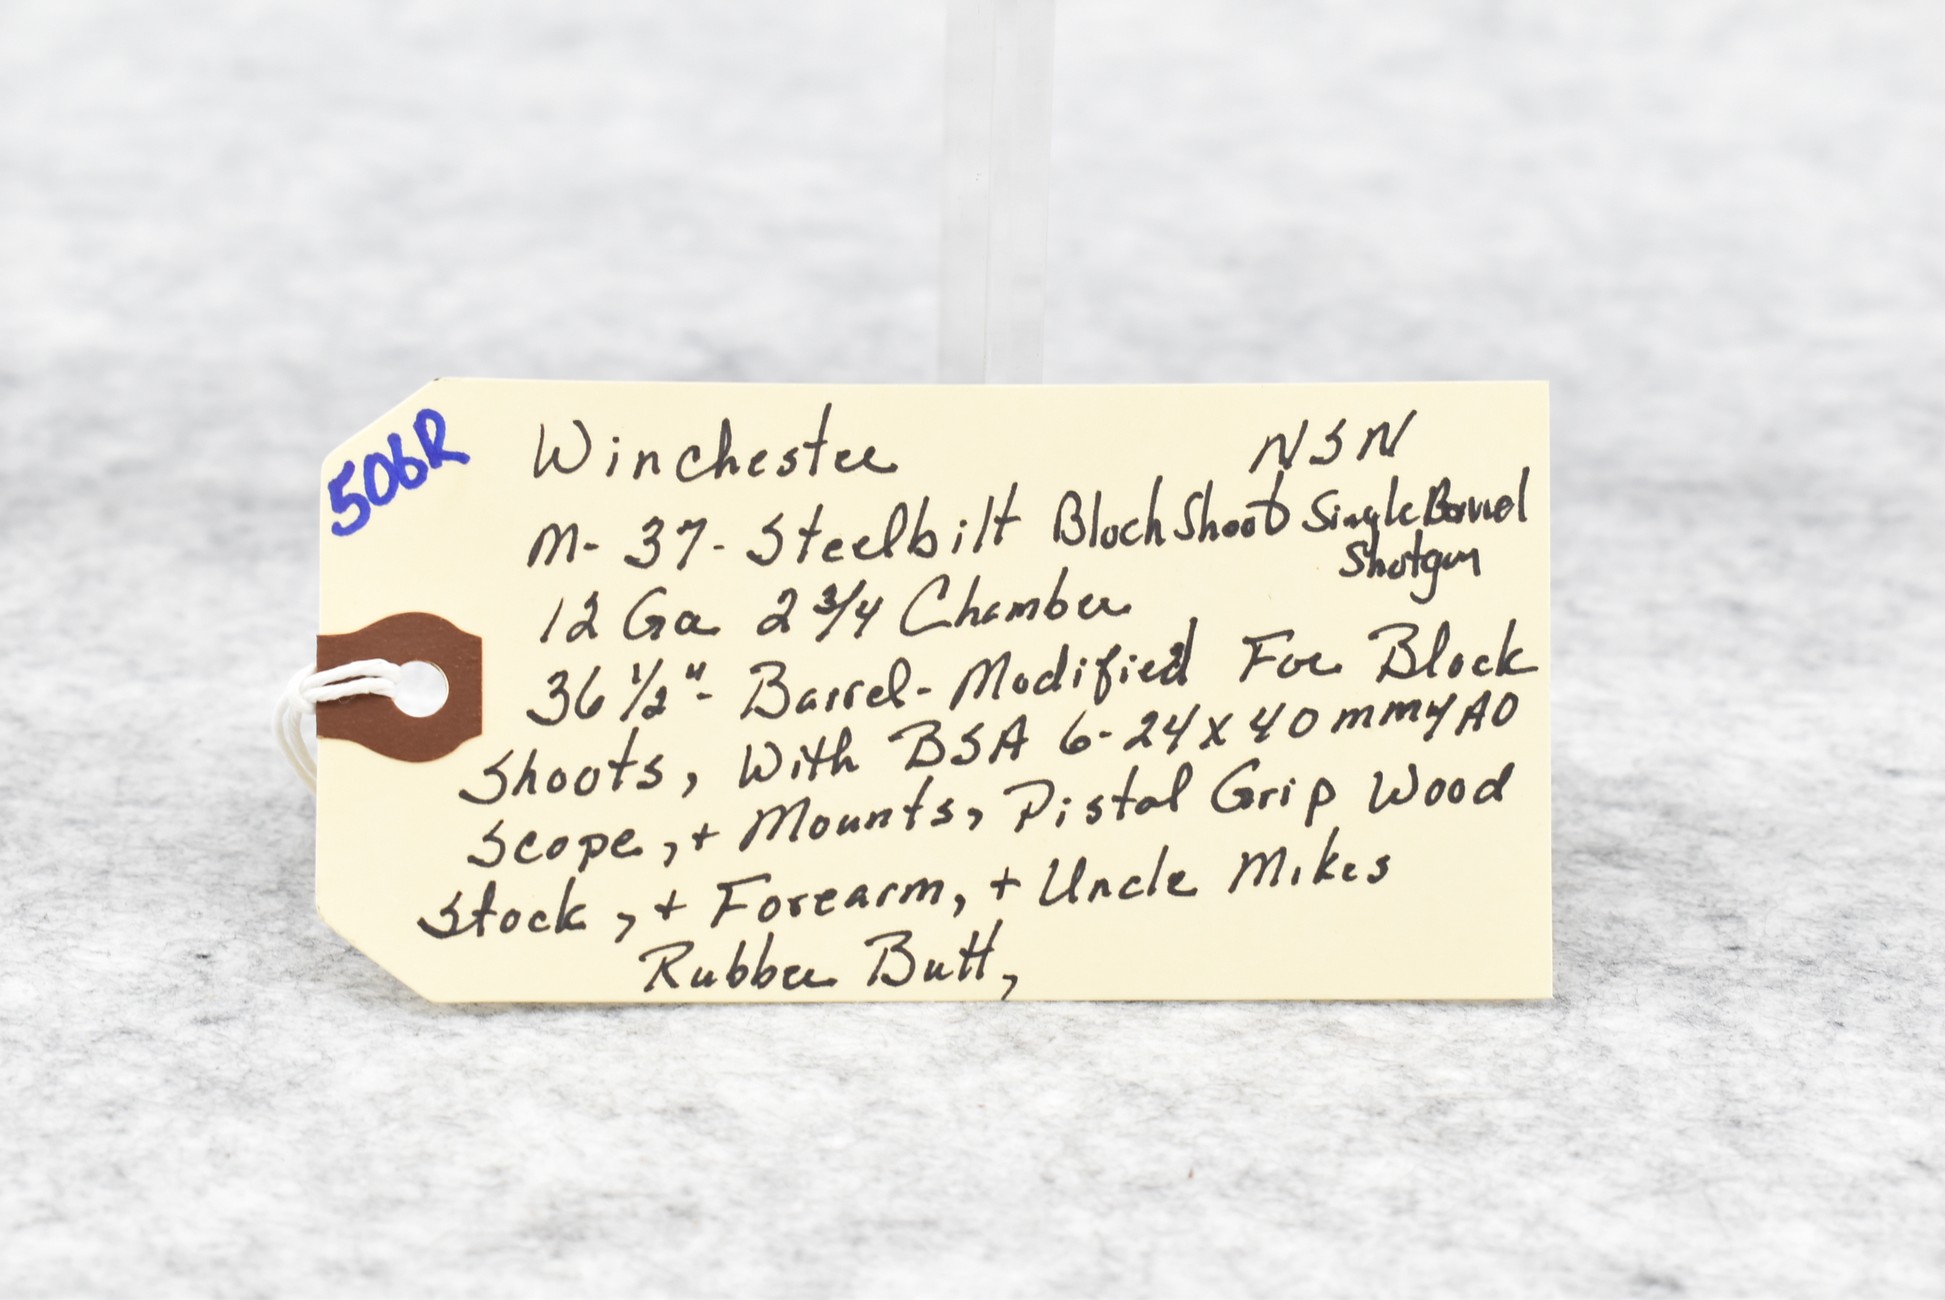 506R
Winchester NSN
M-37-Steelbilt Block Shoot Single Barrel
Shotgun
12 Ga 2 3/4 Chamber
36 1/2"- Barrel-Modified For Block
Shoots, With BSA 6-24x40mmy AO
Scope, + Mounts, Pistol Grip Wood
Stock, + Forearm, + Uncle Mikes
Rubber Butt,